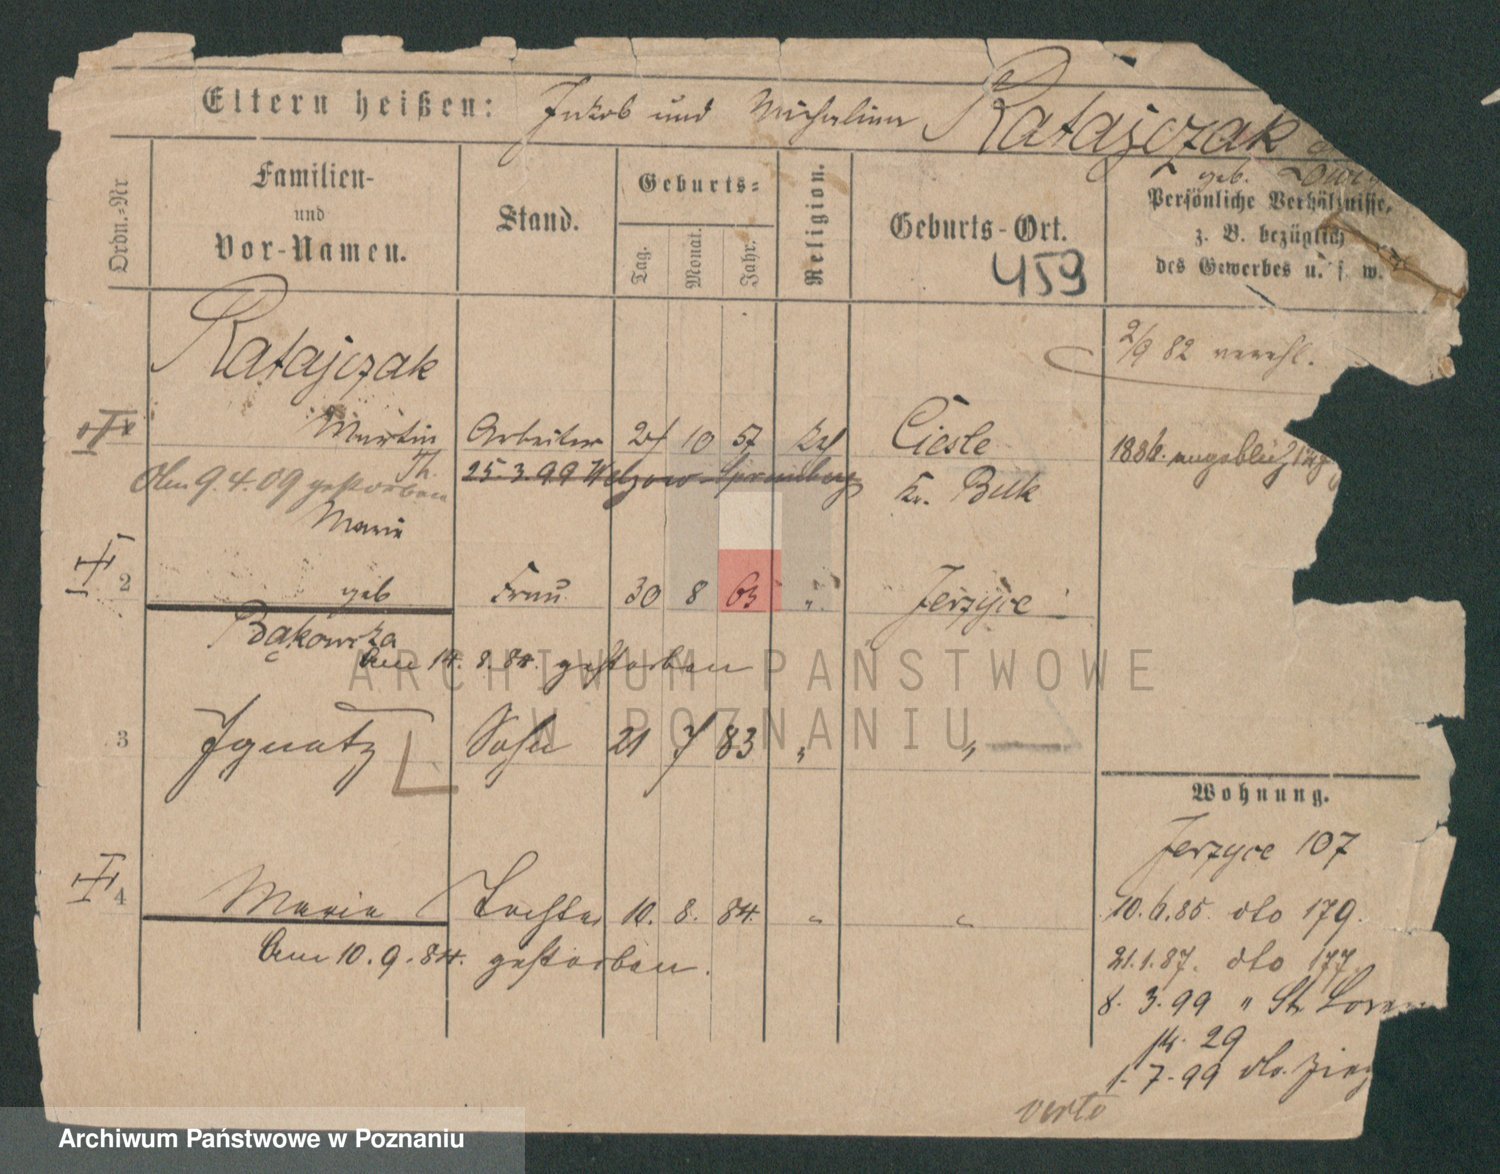 Eltern heißen: Jakob und Michalina Ratajczak
geb.
Ordn.-Nr.
Familien-
und
Vor-Namen.
Stand.
Geburts-
Tag.
Monat.
Jahr.
Religion.
Geburts-Ort.
459
Persönliche Verhältnisse,
z. B. bezüglich
des Gewerbes u. s. w.
Ratajczak
2/9 82 verehl.
Martin Arbeiter 27 10 57 Kath Cieśle
1886. angeblich
Am 9.4.09 gestorben
25.3.99 Welzow Spremberg
Kr. Buk
Marie
2 geb Frau 30 8 63 " Jerzyce
Bąkowska
Am 14. 8. 84. gestorben
3 Ignatz Sohn 21 7 83 " "
4 Marie Tochter 10. 8. 84. " "
Am 10. 9. 84. gestorben.
Wohnung.
Jerzyce 107
10.6.85. dto 179.
21.1.87. dto 177
8. 3. 99 " St Loren
29
1. 7. 99 do.
verte
ARCHIWUM PAŃSTWOWE
W POZNANIU
Archiwum Państwowe w Poznaniu